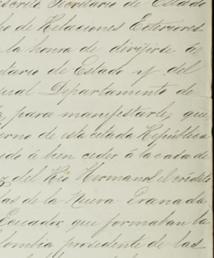 Secretario de Estado
de Relaciones Exteriores
la honra de dirijirse de
de Estado y del
Departamento de
para manifestarle, que
de esta citada República
á bien ceder á la casa de
del Rio Hermanos el crédito
de la Nueva Granada
Ecuador que formaban la
procedente de las